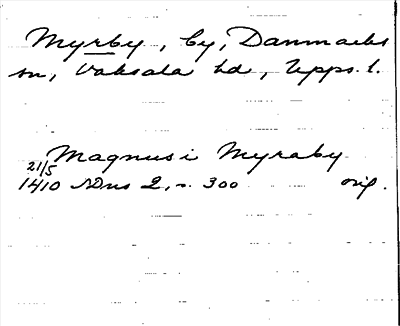 Myrby, by, Danmarks
sn, Vaksala hd, Upps. l.
Magnus i Myraby
21/5
1410 SDns 2, n. 300 orig.